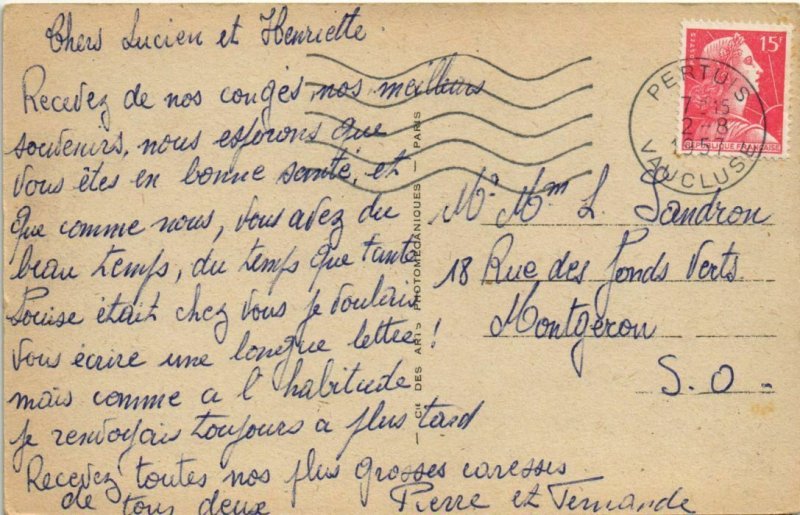 Chers Lucien et Henriette
Recevez de nos congés nos meilleurs
souvenirs, nous esperons que
vous êtes en bonne santé, et
que comme nous, vous avez du
beau temps, du temps que tante
Louise était chez vous je voulais
vous écrire une longue lettre !
mais comme a l'habitude
je renvoyais toujours a plus tard
Recevez toutes nos plus grosses caresses
de tous deux Pierre et Fernande
CIE DES ARTS PHOTOMÉCANIQUES — PARIS
POSTES
15F
RÉPUBLIQUE FRANÇAISE
PERTUIS
15
2 - 8
1957
VAUCLUSE
Mr Mme L. Sandron
18 Rue des Fonds Verts
Montgeron
S. O.